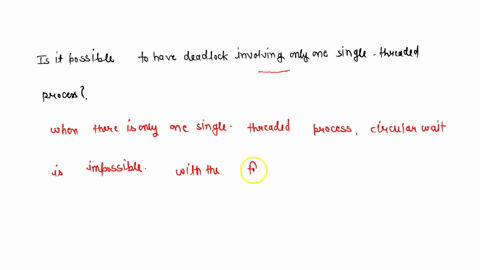 Is it possible to have deadlock involving only one single-threaded
process?
when there is only one single-threaded process, circular wait
is impossible. with the